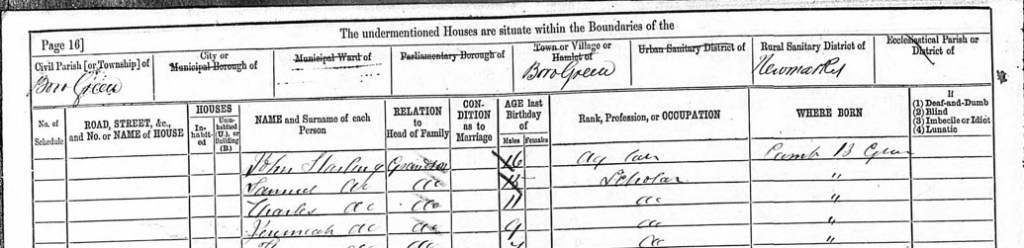 The undermentioned Houses are situate within the Boundaries of the
Page 16]
Civil Parish [or Township] of
Boro Green
City or
Municipal Borough of
Municipal Ward of
Parliamentary Borough of
Town or Village or
Hamlet of
Boro Green
Urban Sanitary District of
Rural Sanitary District of
Newmarket
Ecclesiastical Parish or
District of
No. of
Schedule
ROAD, STREET, &c.,
and No. or NAME of HOUSE
HOUSES
In-
habit-
ed
Unin-
habited
(U.), or
Building
(B.)
NAME and Surname of each
Person
RELATION
to
Head of Family
CON-
DITION
as to
Marriage
AGE last
Birthday
of
Males
Females
Rank, Profession, or OCCUPATION
WHERE BORN
If
(1) Deaf-and-Dumb
(2) Blind
(3) Imbecile or Idiot
(4) Lunatic
John Starling Grandson 16 Ag Lab Camb B Green
Samuel do do 13 Scholar "
Charles do do 11 do "
Jeremiah do do 9 do "
do do "